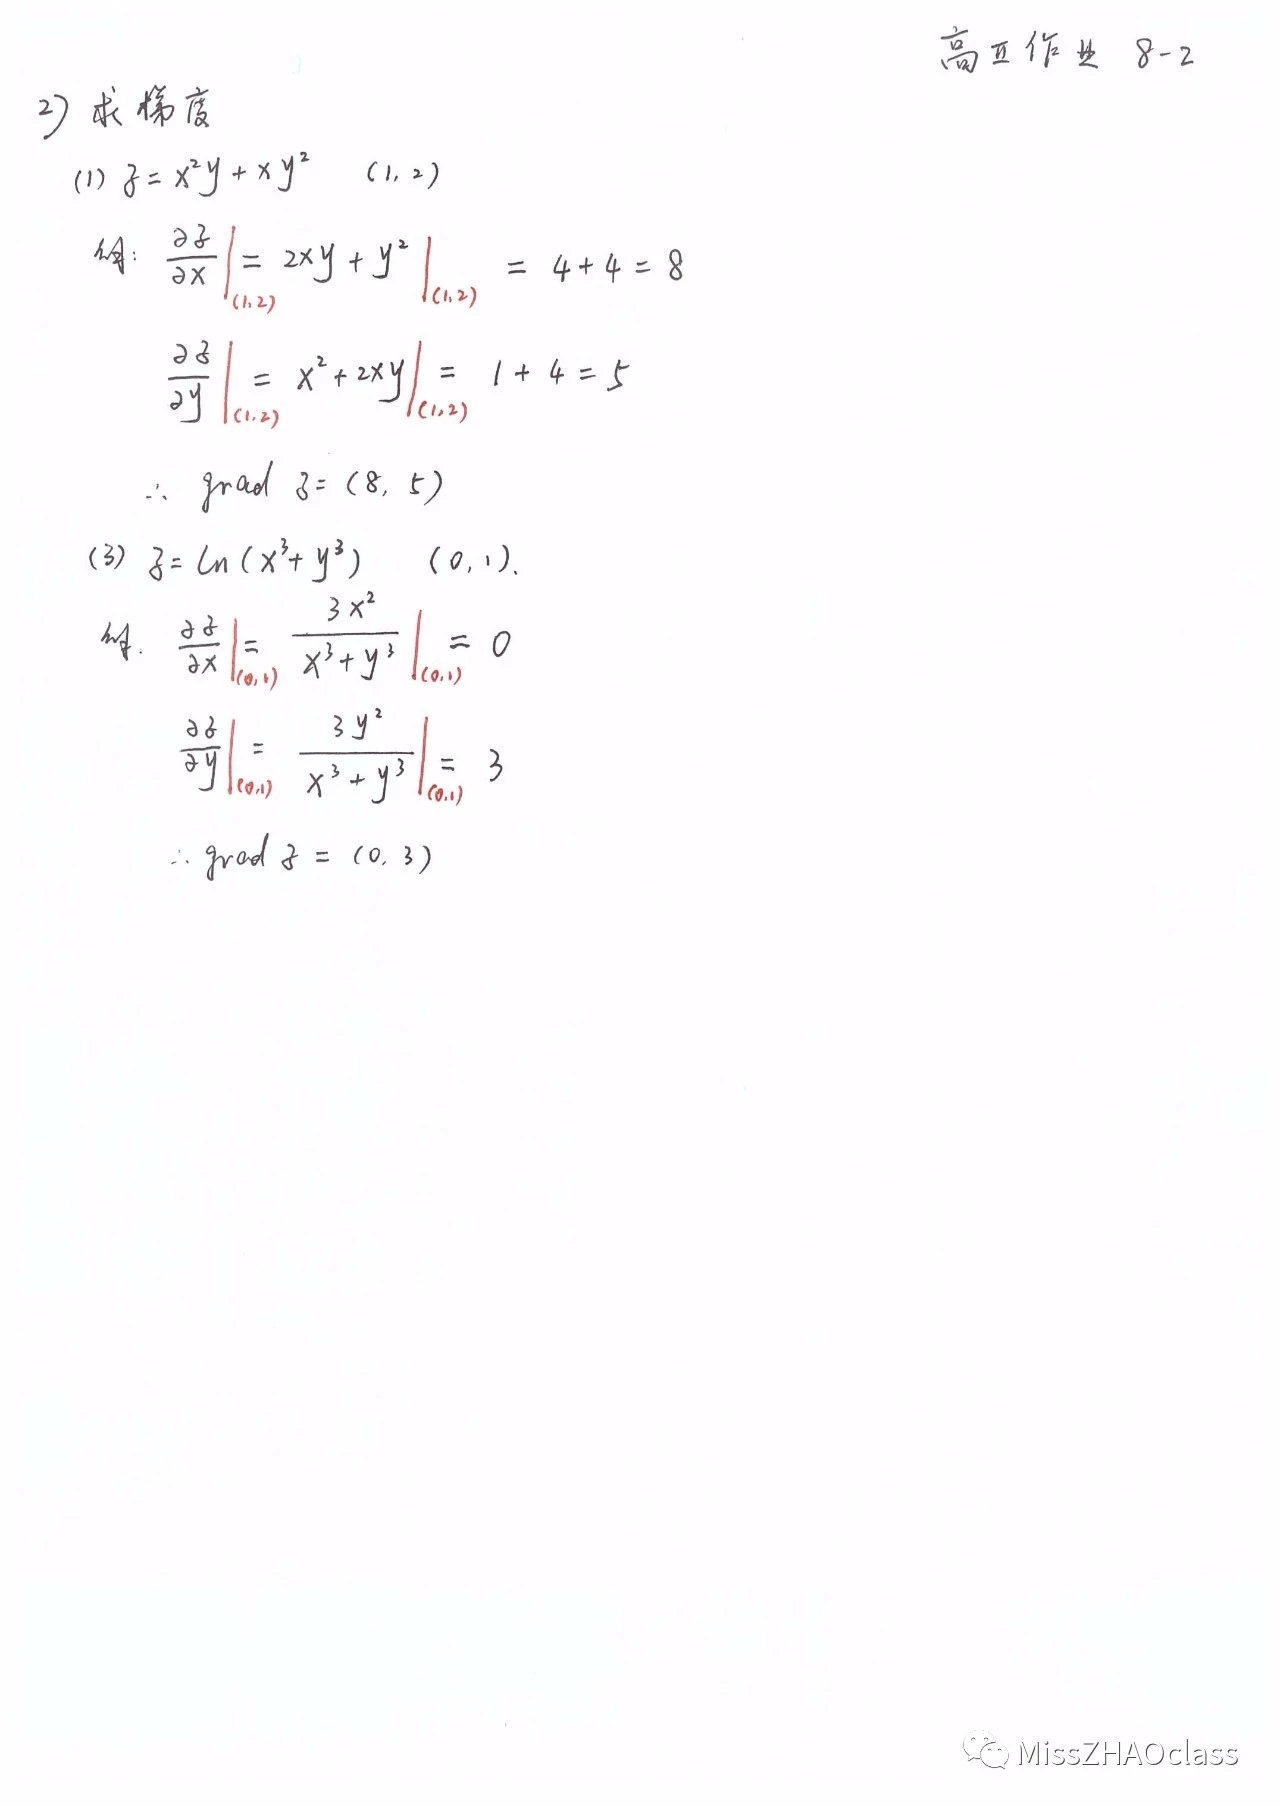 高工作业 8-2
2) 求梯度
(1) z = x²y + xy² (1, 2)
解: ∂z/∂x |(1,2) = 2xy + y² |(1,2) = 4 + 4 = 8
∂z/∂y |(1,2) = x² + 2xy |(1,2) = 1 + 4 = 5
∴ grad z = (8, 5)
(3) z = ln(x³ + y³) (0, 1).
解. ∂z/∂x |(0,1) = 3x²/(x³ + y³) |(0,1) = 0
∂z/∂y |(0,1) = 3y²/(x³ + y³) |(0,1) = 3
∴ grad z = (0, 3)
MissZHAOclass